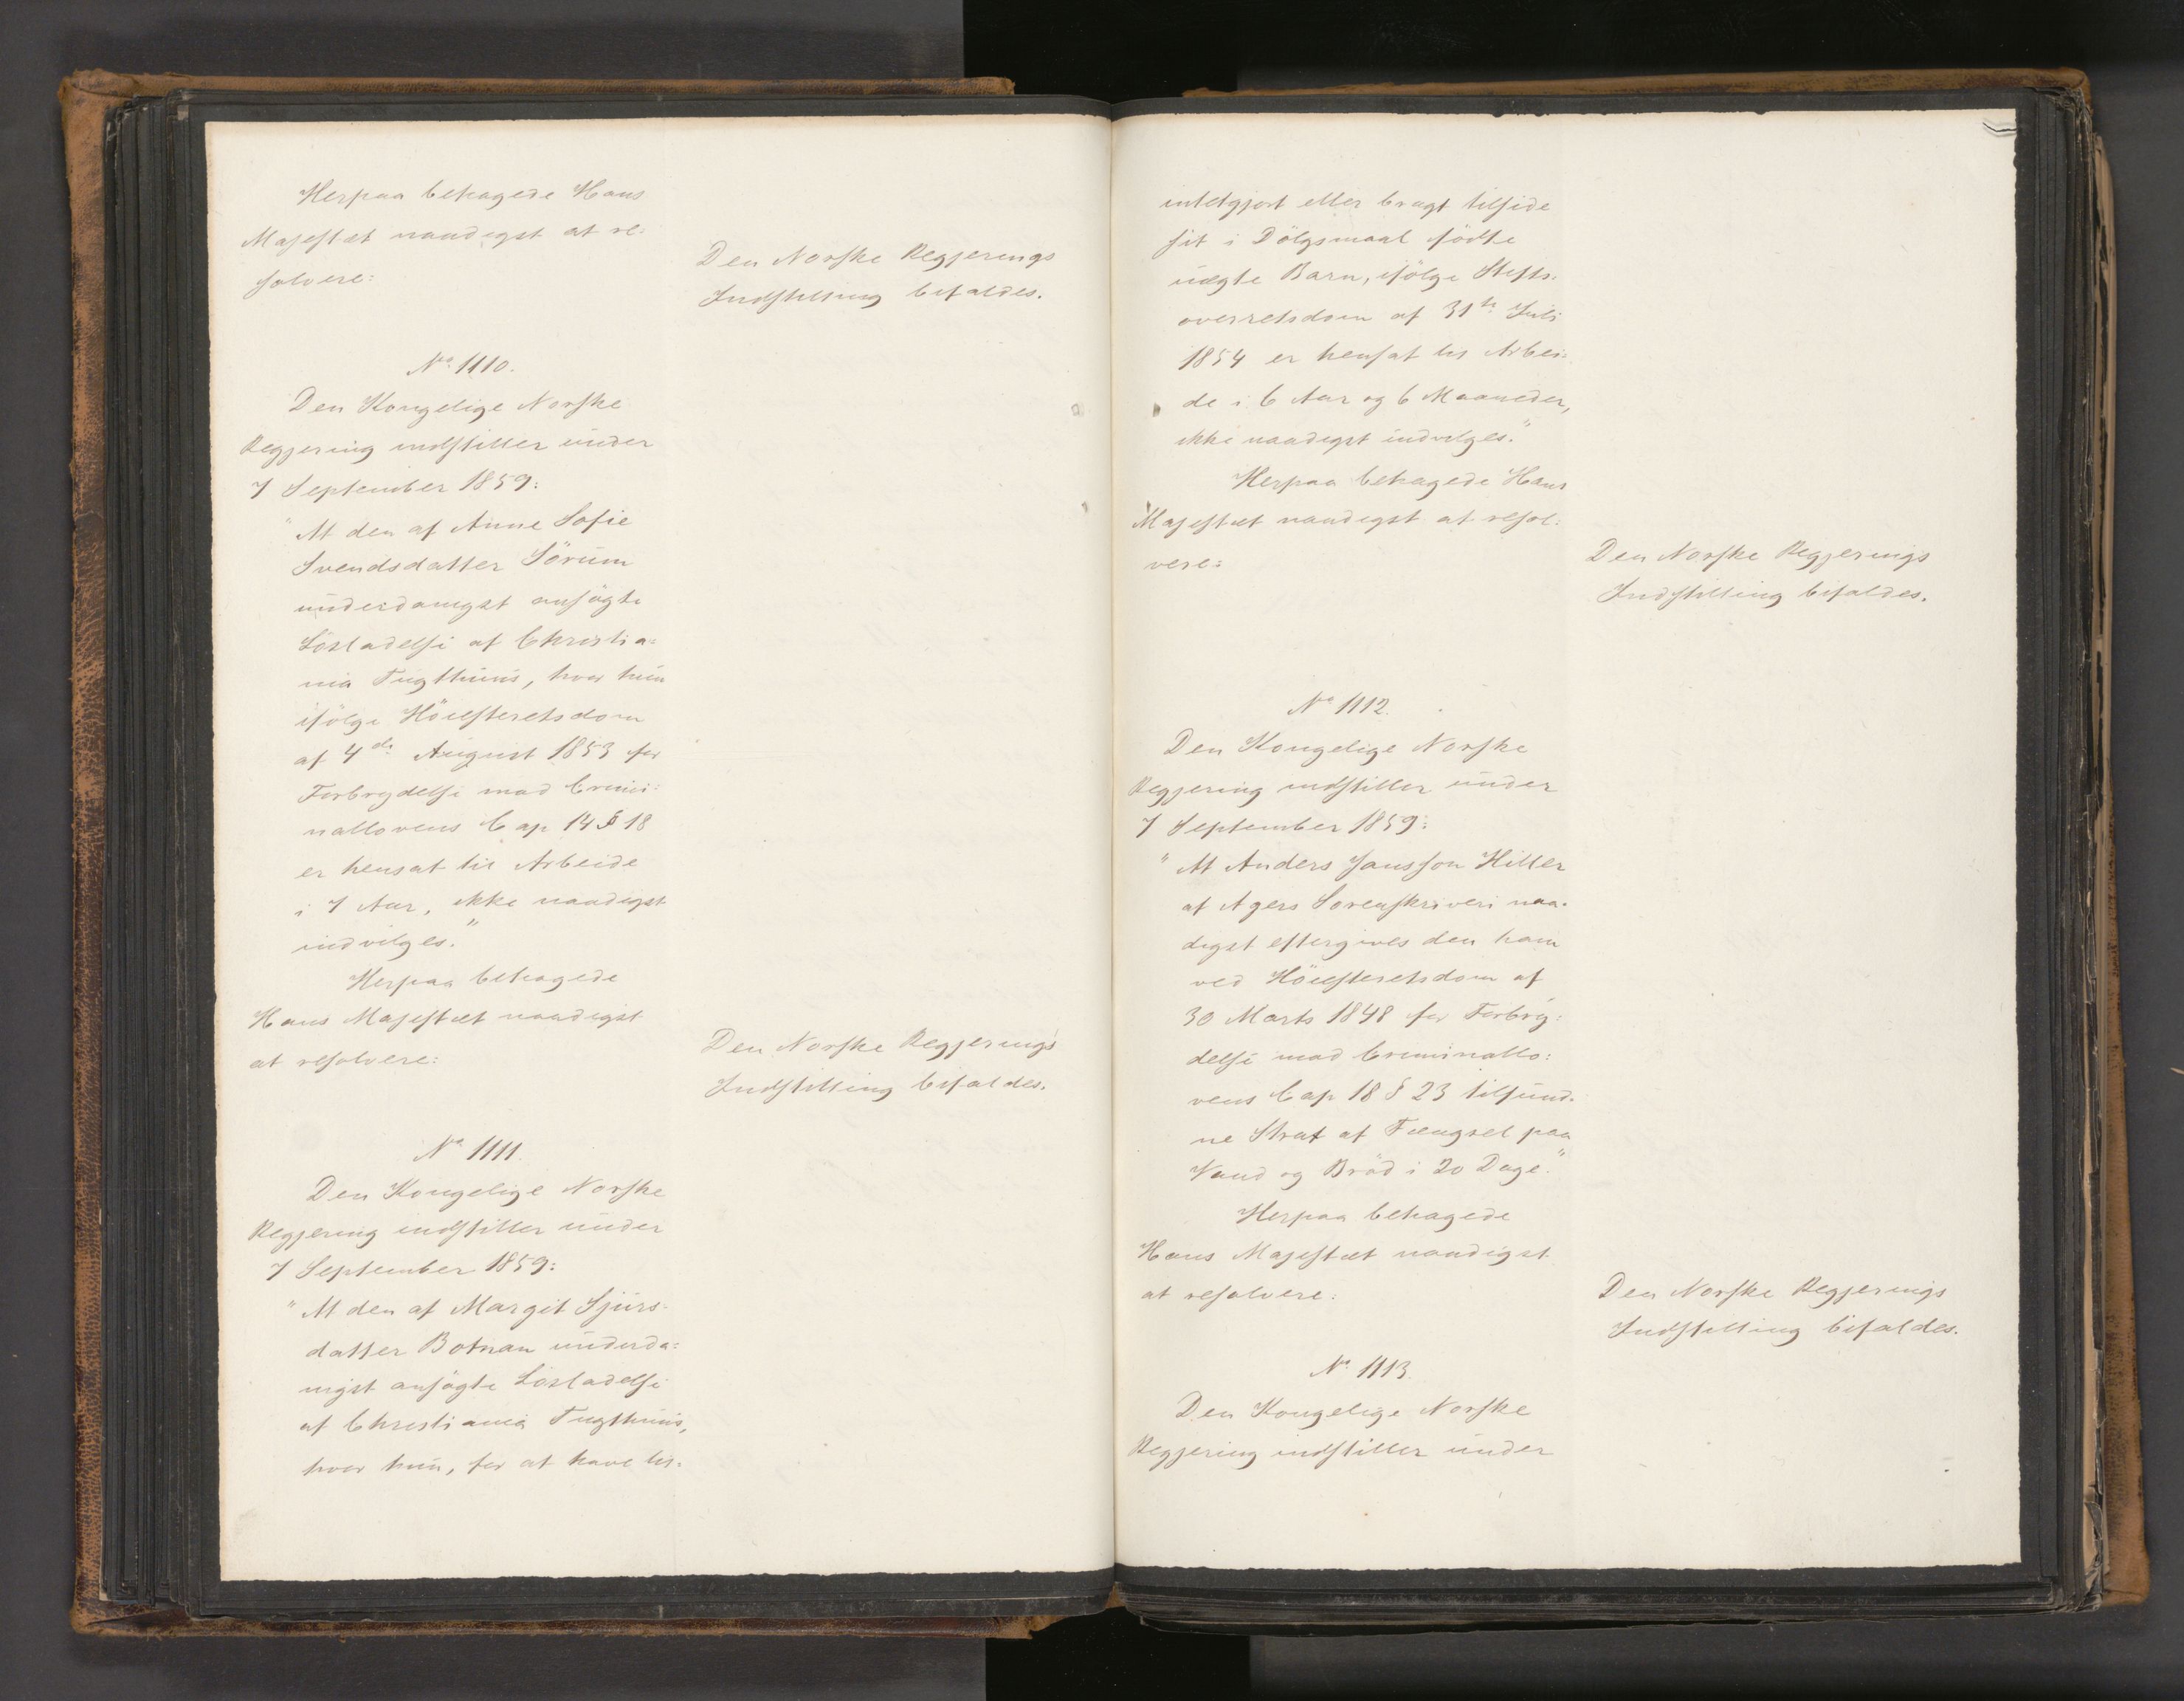 Herpaa behagede Hans
Majestæt naadigst at re-
solvere:
Den Norske Regjerings
Indstilling bifaldes.
No 1110.
Den Kongelige Norske
Regjering indstiller under
7 September 1859:
"At den af Anne Sofie
Svendsdatter Sörum
underdanigst ansögte
Lösladelse af Christia-
nia Tugthuus, hvor hun
ifölge Höiesteretsdom
af 4de August 1853 for
Forbrydelse mod Crimi-
nallovens Cap 14 § 18
er hensat til Arbeide
i 7 Aar, ikke naadigst
indvilges."
Herpaa behagede
Hans Majestæt naadigst
at resolvere:
Den Norske Regjerings
Indstilling bifaldes.
No 1111.
Den Kongelige Norske
Regjering indstiller under
7 September 1859:
"At den af Margit Sjurs-
datter Botnan underda-
nigst ansögte Lösladelse
af Christiania Tugthuus,
hvor hun, for at have til-
intetgjort eller bragt tilside
sit i Dölgsmaal födte
uægte Barn, ifölge Stifts-
overretsdom af 31te Juli
1854 er hensat til Arbei-
de i 6 Aar og 6 Maaneder,
ikke naadigst indvilges."
Herpaa behagede Hans
Majestæt naadigst at resol-
vere:
Den Norske Regjerings
Indstilling bifaldes.
No 1112.
Den Kongelige Norske
Regjering indstiller under
7 September 1859:
"At Anders Jansson Hiller
af Agers Sorenskriveri naa-
digst eftergives den ham
ved Höiesteretsdom af
30 Marts 1848 for Forbry-
delse mod Criminallo-
vens Cap 18 § 23 tilfund-
ne Straf af Fængsel paa
Vand og Bröd i 20 Dage."
Herpaa behagede
Hans Majestæt naadigst
at resolvere:
Den Norske Regjerings
Indstilling bifaldes.
No 1113.
Den Kongelige Norske
Regjering indstiller under